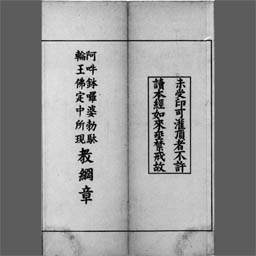 未受印可灌頂者不許
讀本經如來至禁戒故
阿吽鉢囉婆勃馱
輪王佛定中所現
教綱章